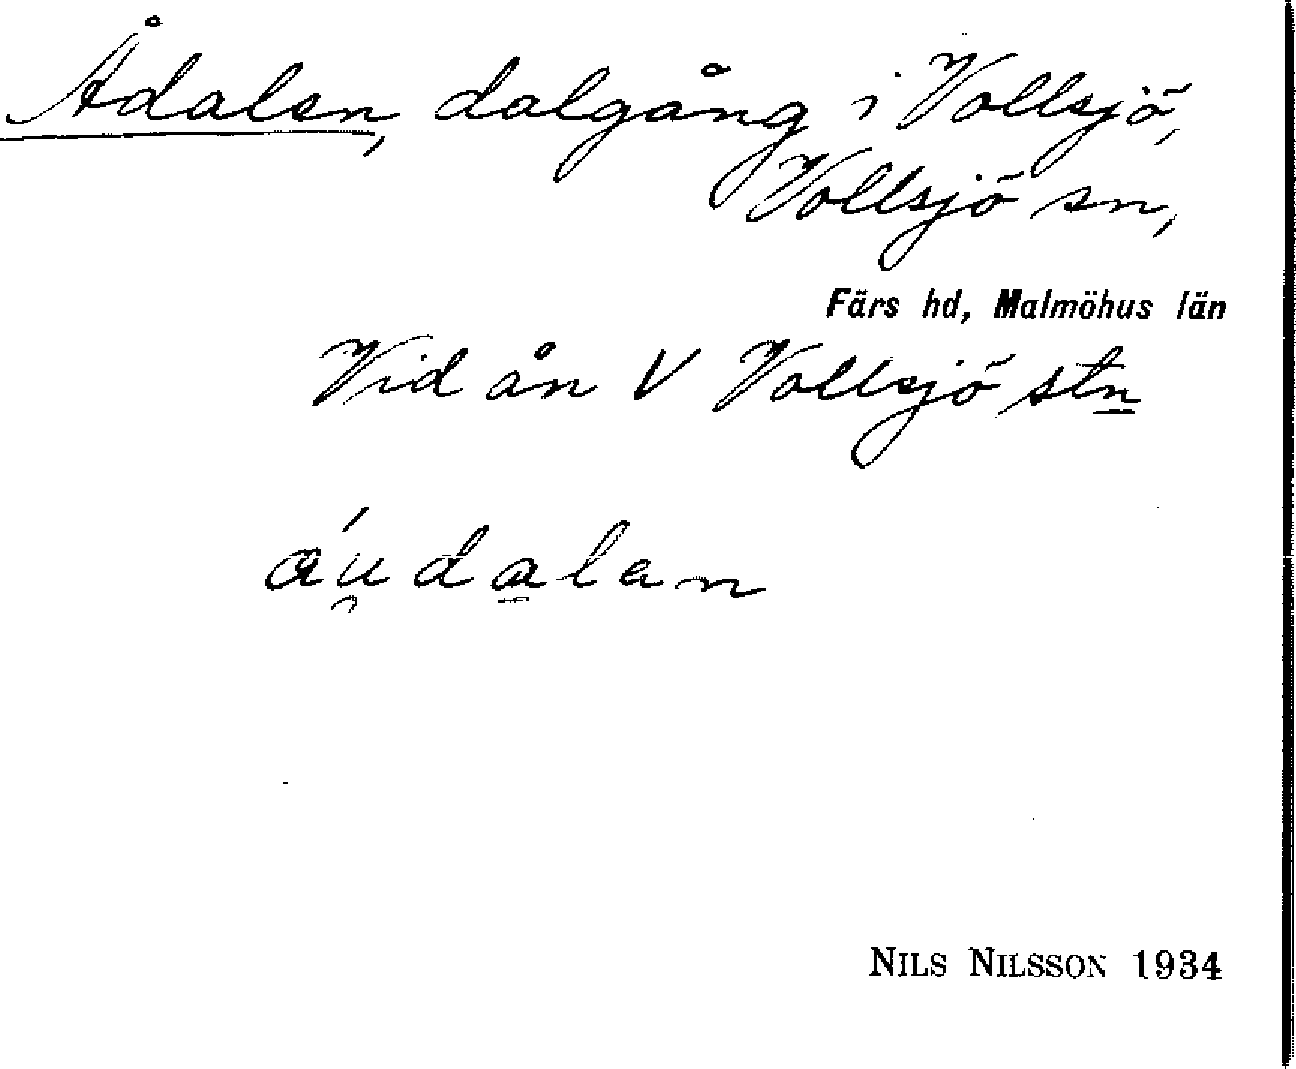 Ådalen, dalgång i Vollsjö,
Vollsjö sn,
Färs hd, Malmöhus län
Vid ån V Vollsjö stn
áu̯da̲len
NILS NILSSON 1934